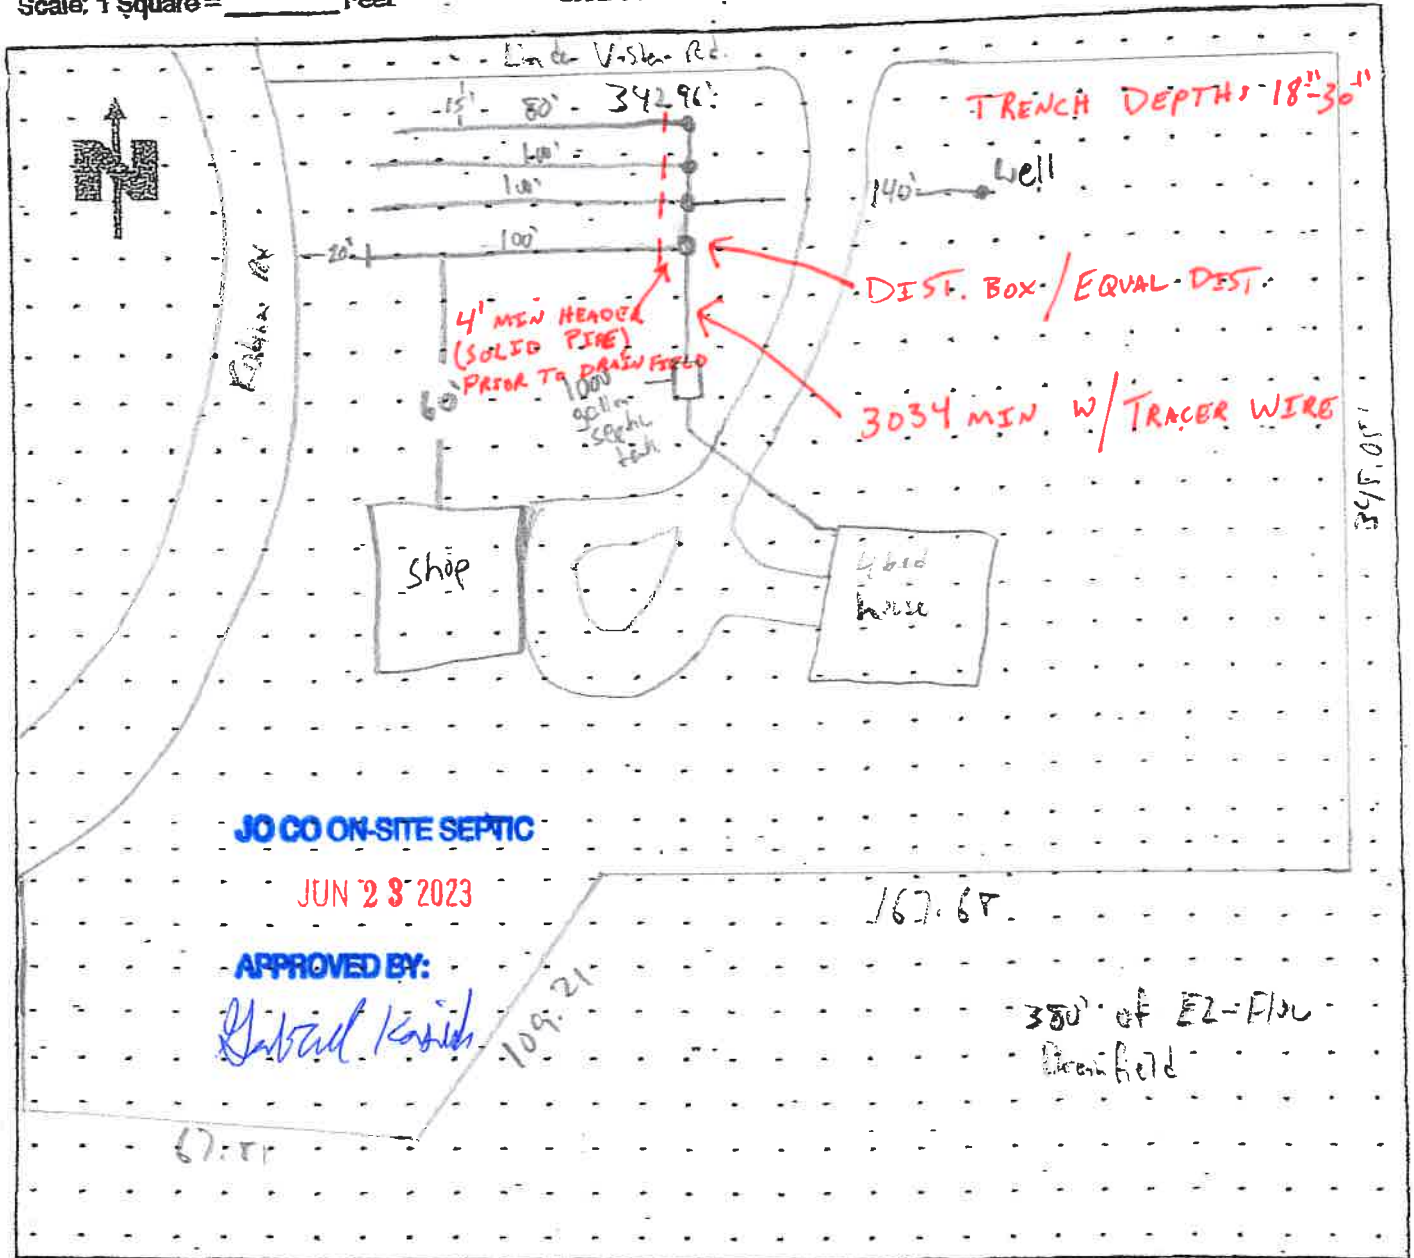 Scale: 1 Square = ________ Feet
Vista Rd.
15' 80' 342.96'
TRENCH DEPTH: 18"-30"
N
100'
100'
140' well
20' 100'
DIST. BOX / EQUAL DIST.
4' MIN HEADER
(SOLID PIPE)
PRIOR TO DRAINFIELD
60'
1000
gallon
septic
tank
3034 MIN W/ TRACER WIRE
shop
4 bed
house
JO CO ON-SITE SEPTIC
JUN 23 2023
167.68
APPROVED BY:
109.21
380' of EZ-Flow
Drainfield